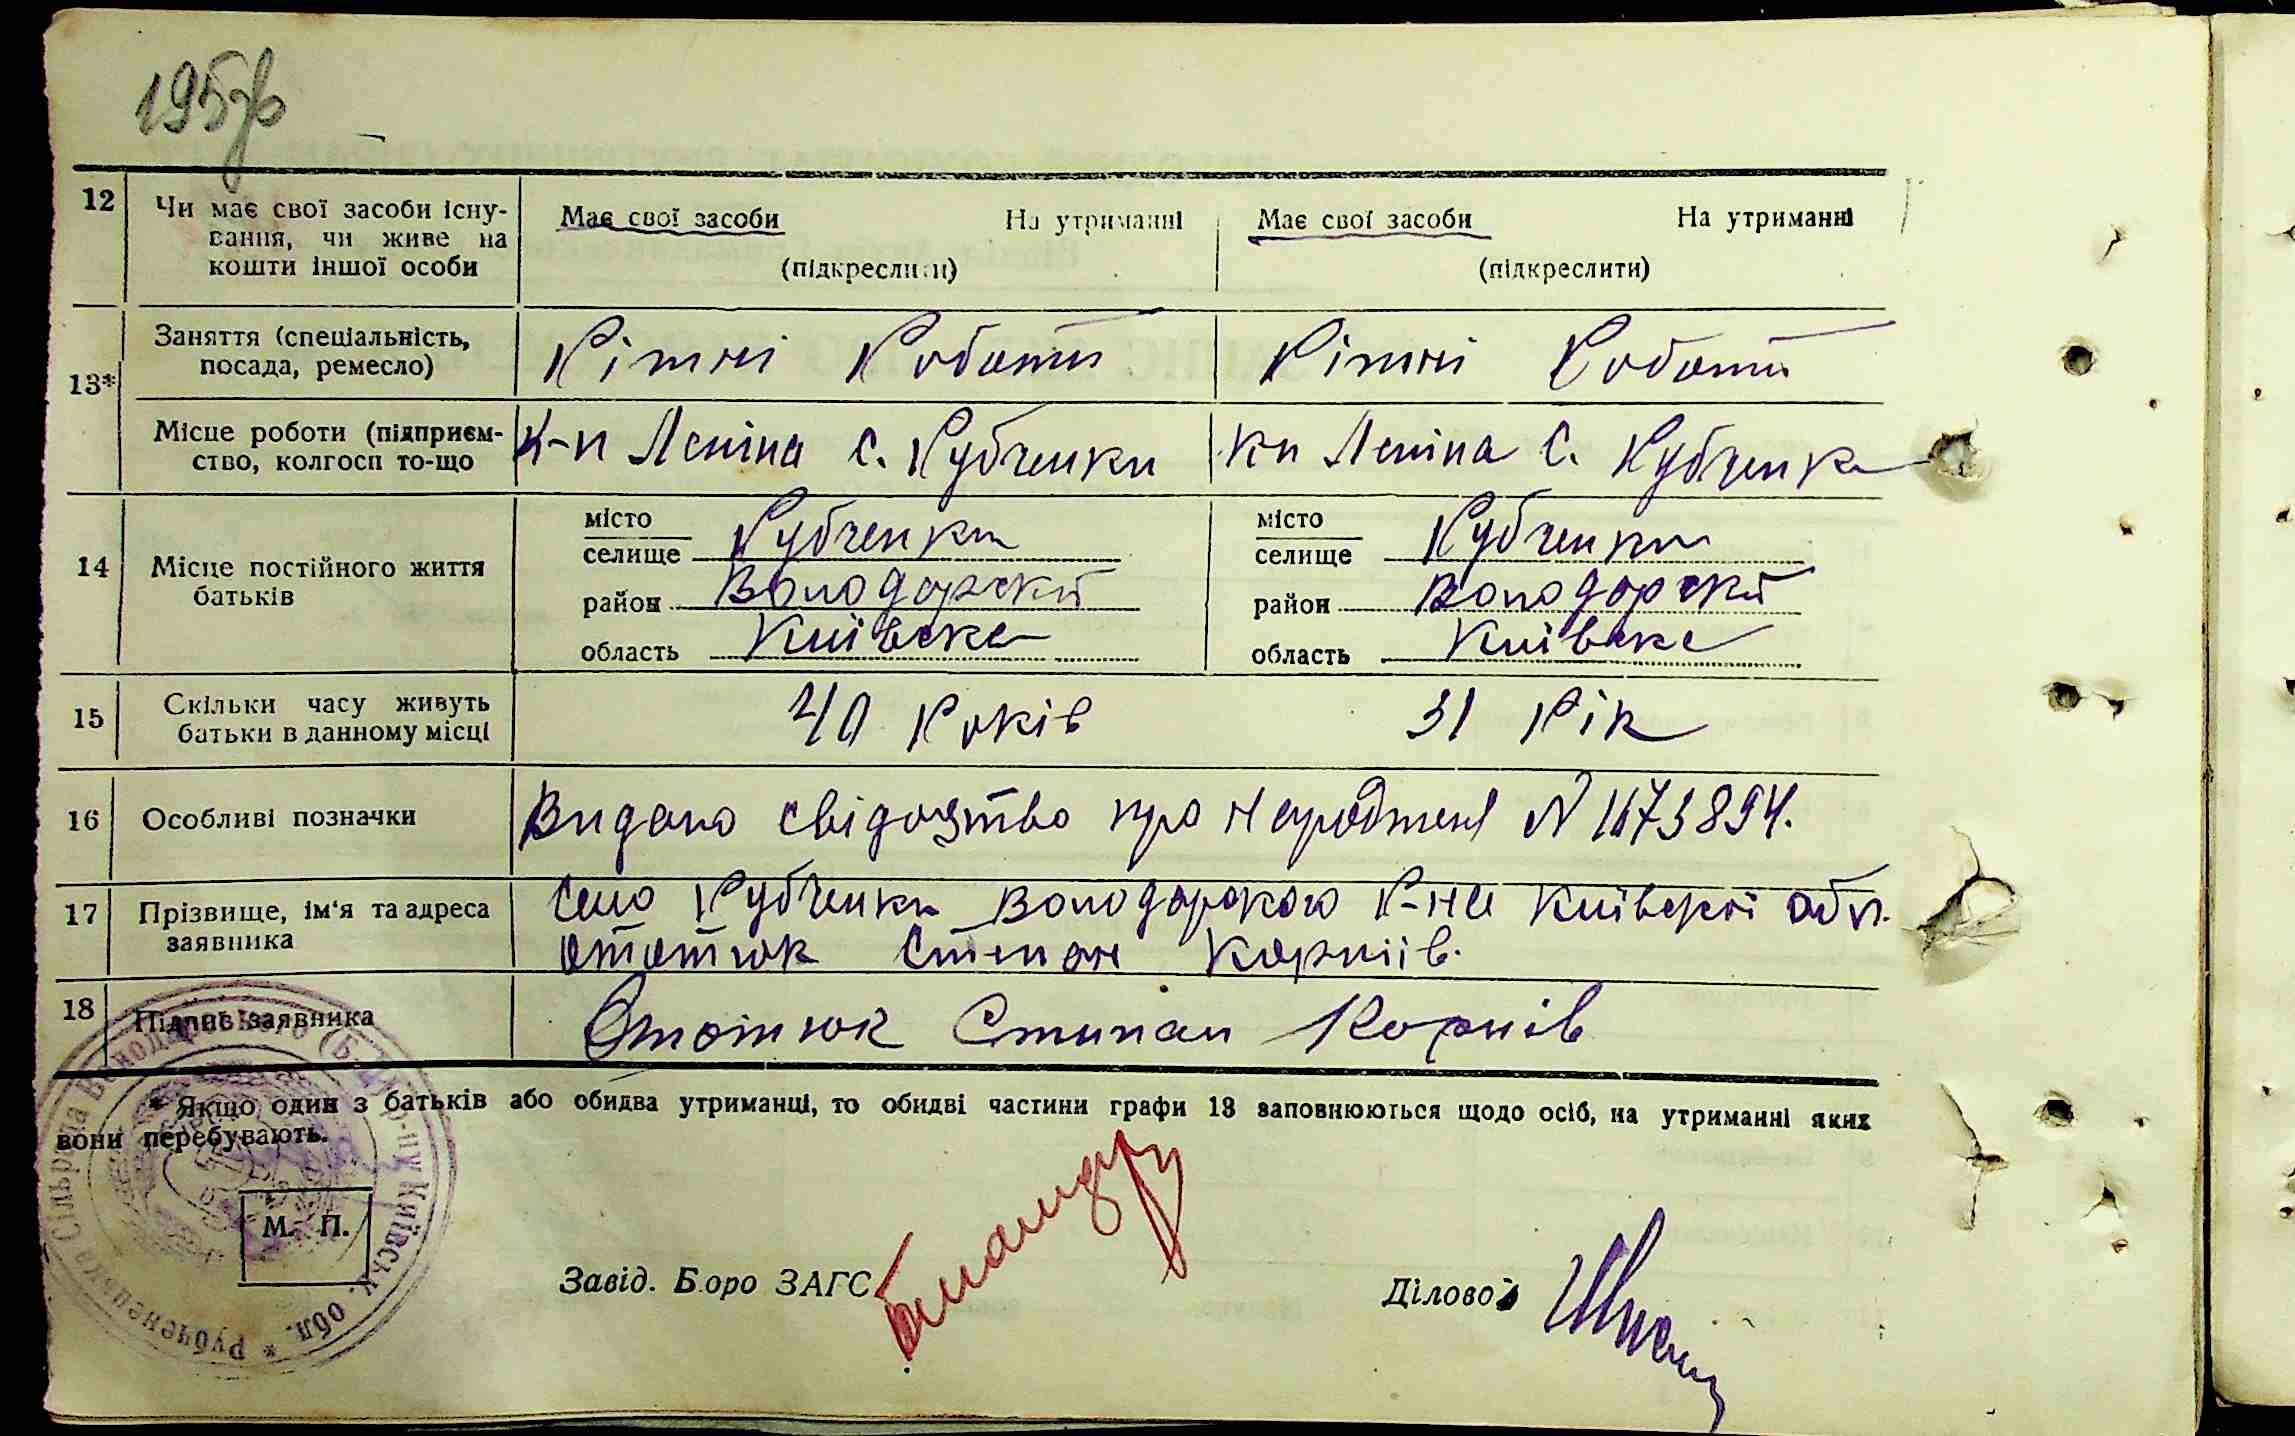 195зв
12 Чи має свої засоби існу-
вання, чи живе на
кошти іншої особи
Має свої засоби На утриманні Має свої засоби На утриманні
(підкреслити) (підкреслити)
13*
Заняття (спеціальність,
посада, ремесло)
Різні Роботи Різні Роботи
Місце роботи (підприєм-
ство, колгосп то-що
К-п Леніна с. Рубченки кп Леніна С. Рубченки
14 Місце постійного життя
батьків
місто
селище Рубченки
район Володарский
область Київска
місто
селище Рубченки
район Володарский
область Київска
15 Скільки часу живуть
батьки в данному місці
40 Років 31 Рік
16 Особливі позначки
Видано свідоцтво про народженя N 1673894.
17 Прізвище, ім'я та адреса
заявника
Село Рубченки Володарского Р-на Київскої обл.
Ототюк Степан Корніїв.
18 Підпис заявника
Ототюк Степан Корнів
* Якщо один з батьків або обидва утриманці, то обидві частини графи 13 заповнюються щодо осіб, на утриманні яких
вони перебувають.
М. П.
Завід. Бюро ЗАГС
Діловод
* Рубченецька Сільрада Володарського (Б.-Ц.) р-ну Київськ. обл.